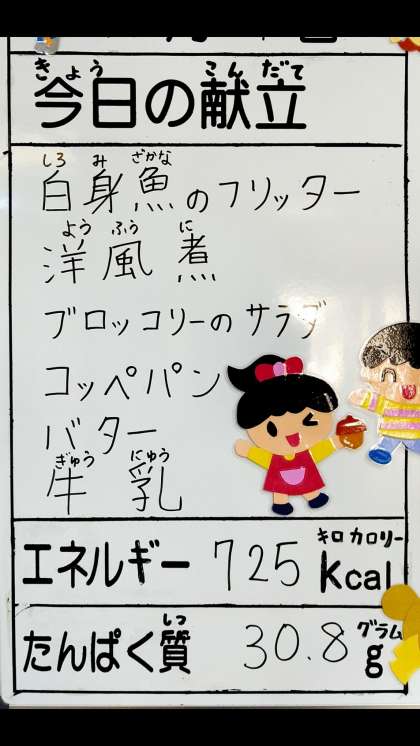 きょう こんだて
今日の献立
しろ み ざかな
白身魚のフリッター
よう ふう に
洋風煮
ブロッコリーのサラダ
コッペパン
バター
ぎゅう にゅう
牛乳
キロカロリー
エネルギー 725 kcal
しつ グラム
たんぱく質 30.8 g